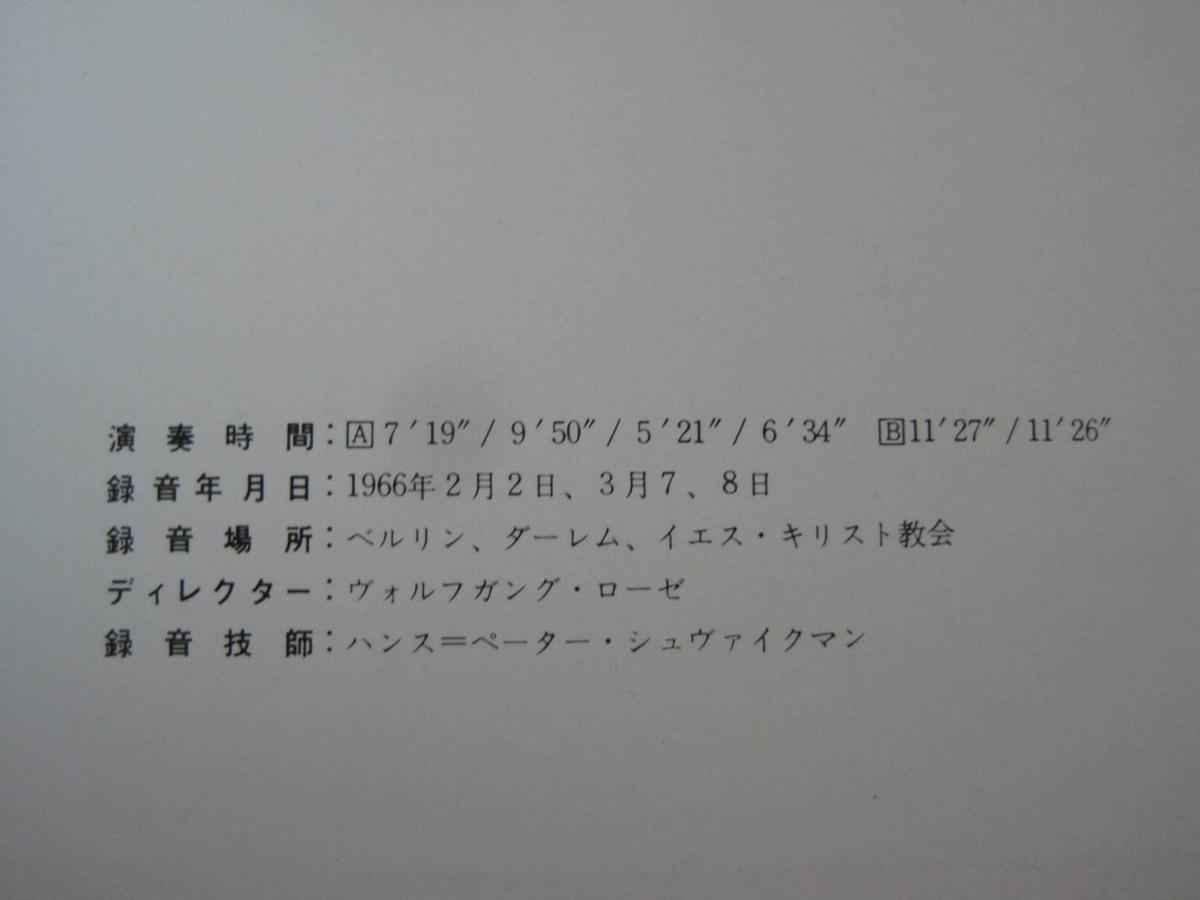 演奏時間：🄰7′19″/ 9′50″/ 5′21″/ 6′34″ 🄱11′27″/11′26″
録音年月日：1966年2月2日、3月7、8日
録音場所：ベルリン、ダーレム、イエス・キリスト教会
ディレクター：ヴォルフガング・ローゼ
録音技師：ハンス＝ペーター・シュヴァイクマン